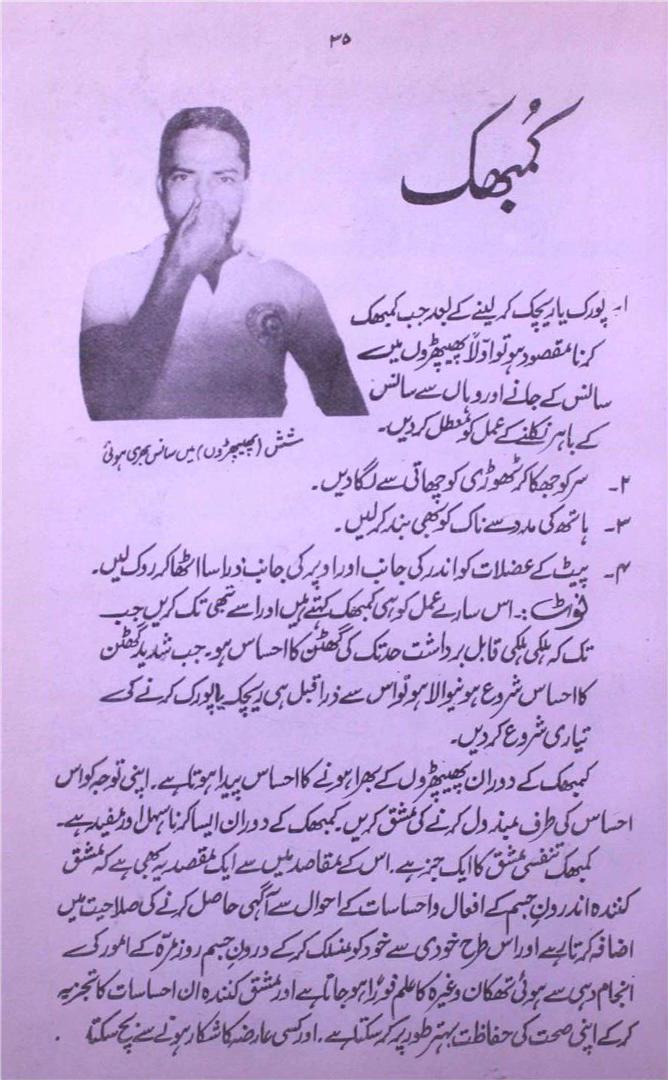 ۳۵
کُمبھک
۱۔ پورک یا ریچک کر لینے کے بعد جب کمبھک
کرنا مقصود ہو تو اولاً پھیپھڑوں میں
سانس کے جانے اور وہاں سے سانس
کے باہر نکلنے کے عمل کو معطل کر دیں۔
شش (پھیپھڑوں) میں سانس بھری ہوئی
۲۔ سر کو جھکا کر ٹھوڑی کو چھاتی سے لگا دیں۔
۳۔ ہاتھ کی مدد سے ناک کو بھی بند کر لیں۔
۴۔ پیٹ کے عضلات کو اندر کی جانب اور اوپر کی جانب ذرا سا اٹھا کر روک لیں۔
نوٹ:۔ اس سارے عمل کو ہی کمبھک کہتے ہیں اور اسے تبھی تک کریں جب
تک کہ ہلکی ہلکی قابل برداشت حد تک کی گھٹن کا احساس ہو۔ جب شدید گھٹن
کا احساس شروع ہونیوالا ہو تو اس سے ذرا قبل ہی ریچک یا پورک کرنے کی
تیاری شروع کر دیں۔
کمبھک کے دوران پھیپھڑوں کے بھرا ہونے کا احساس پیدا ہوتا ہے۔ اپنی توجہ کو اس
احساس کی طرف مبذول کرنے کی مشق کریں۔ کمبھک کے دوران ایسا کرنا سہل اور مفید ہے۔
کمبھک تنفسی مشق کا ایک جز ہے۔ اس کے مقاصد میں سے ایک مقصد یہ بھی ہے کہ مشق
کنندہ اندرونِ جسم کے افعال و احساسات کے احوال سے آگہی حاصل کرنے کی صلاحیت میں
اضافہ کرتا ہے اور اس طرح خودی سے خود کو منسلک کر کے درونِ جسم روز مرّہ کے امور کی
انجام دہی سے ہوئی تھکان وغیرہ کا علم فوراً ہو جاتا ہے اور مشق کنندہ ان احساسات کا تجزیہ
کر کے اپنی صحت کی حفاظت بہتر طور پر کر سکتا ہے۔ اور کسی عارضہ کا شکار ہونے سے بچ سکتا